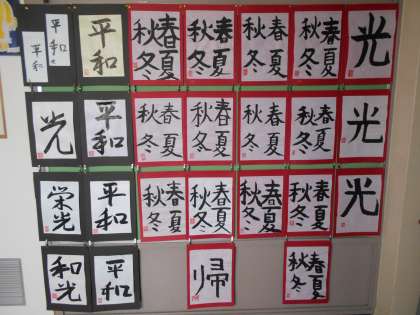 平和
平和
平和
春夏
秋冬
春夏
秋冬
春夏
秋冬
春夏
秋冬
光
光
平和
春夏
秋冬
春夏
秋冬
春夏
秋冬
春夏
秋冬
光
栄光
平和
春夏
秋冬
春夏
秋冬
春夏
秋冬
春夏
秋冬
光
和光
平和
帰
春夏
秋冬